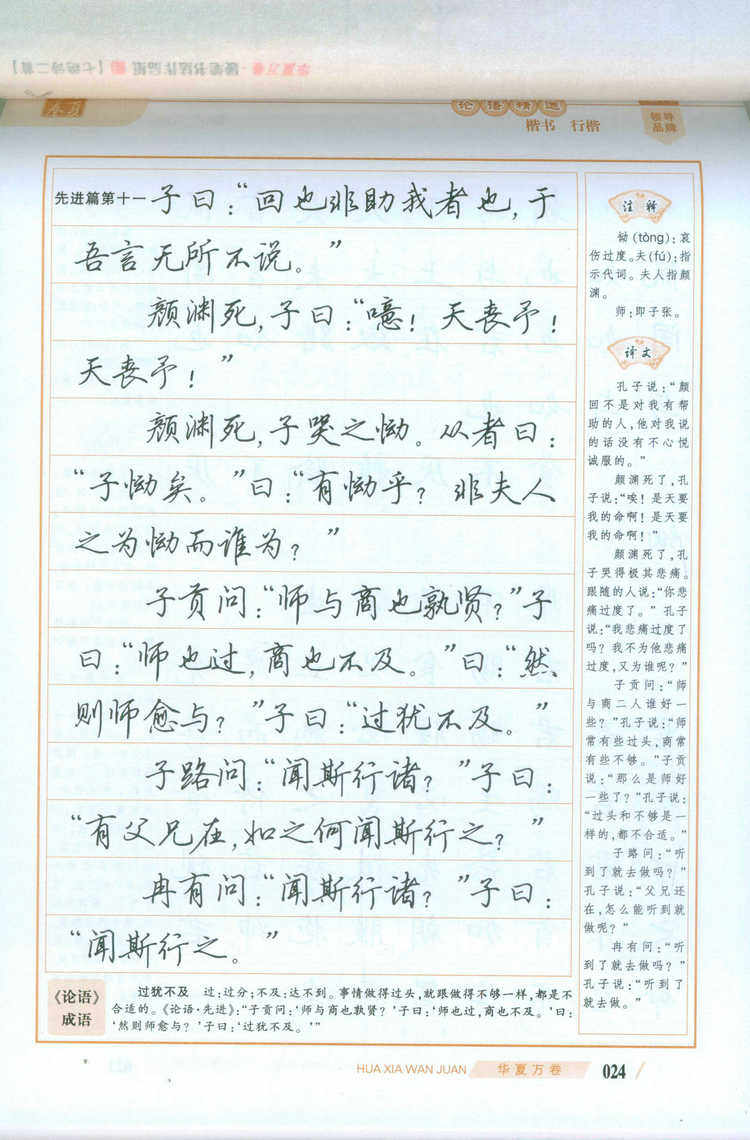 华夏万卷·硬笔书法作品纸【七绝诗二首】
华夏
论语精选
楷书 行楷
领导
品牌
先进篇第十一 子曰：“回也非助我者也，于
吾言无所不说。”
颜渊死，子曰：“噫！天丧予！
天丧予！”
颜渊死，子哭之恸。从者曰：
“子恸矣。”曰：“有恸乎？非夫人
之为恸而谁为？”
子贡问：“师与商也孰贤？”子
曰：“师也过，商也不及。”曰：“然
则师愈与？”子曰：“过犹不及。”
子路问：“闻斯行诸？”子曰：
“有父兄在，如之何闻斯行之？”
冉有问：“闻斯行诸？”子曰：
“闻斯行之。”
注释
恸(tòng)：哀
伤过度。夫(fú)：指
示代词。夫人指颜
渊。
师：即子张。
译文
孔子说：“颜
回不是对我有帮
助的人，他对我说
的话没有不心悦
诚服的。”
颜渊死了，孔
子说：“唉！是天要
我的命啊！是天要
我的命啊！”
颜渊死了，孔
子哭得极其悲痛。
跟随的人说：“你悲
痛过度了。”孔子
说：“我悲痛过度了
吗？我不为他悲痛
过度，又为谁呢？”
子贡问：“师
与商二人谁好一
些？”孔子说：“师
常有些过头，商常
有些不够。”子贡
说：“那么是师好
一些了？”孔子说：
“过头和不够是一
样的，都不合适。”
子路问：“听
到了就去做吗？”
孔子说：“父兄还
在，怎么能听到就
做呢？”
冉有问：“听
到了就去做吗？”
孔子说：“听到了
就去做。”
《论语》
成语
过犹不及 过：过分；不及：达不到。事情做得过头，就跟做得不够一样，都是不
合适的。《论语·先进》：“子贡问：‘师与商也孰贤？’子曰：‘师也过，商也不及。’曰：
‘然则师愈与？’子曰：‘过犹不及。’”
HUA XIA WAN JUAN 华夏万卷 024